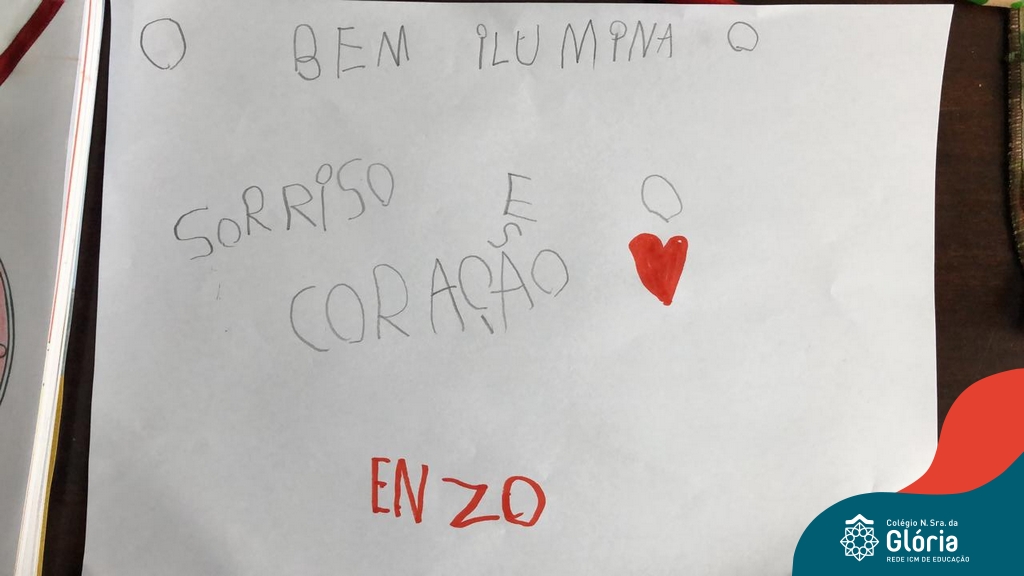 O BEM ILUMINA O
SORRISO E O
CORAÇÃO
ENZO
Colégio N. Sra. da
Glória
REDE ICM DE EDUCAÇÃO